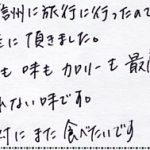 信州に旅行に行ったので
に頂きました。
も味もカロリーも最
ない味です。
にまた食べたいです